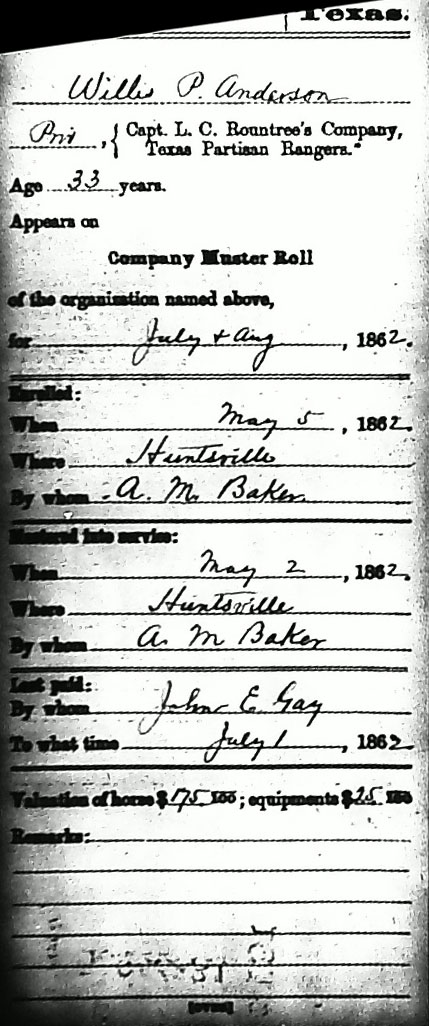 Texas.
Willis P. Anderson
Priv, { Capt. L. C. Rountree's Company,
Texas Partisan Rangers.*
Age 33 years.
Appears on
Company Muster Roll
of the organization named above,
for July & Aug, 1862.
Enrolled:
When May 5, 1862.
Where Huntsville
By whom A. M. Baker
Mustered into service:
When May 2, 1862.
Where Huntsville
By whom A. M Baker
Last paid:
By whom John E. Gay
To what time July 1, 1862.
Valuation of horse $175 100; equipments $25 100
Remarks: